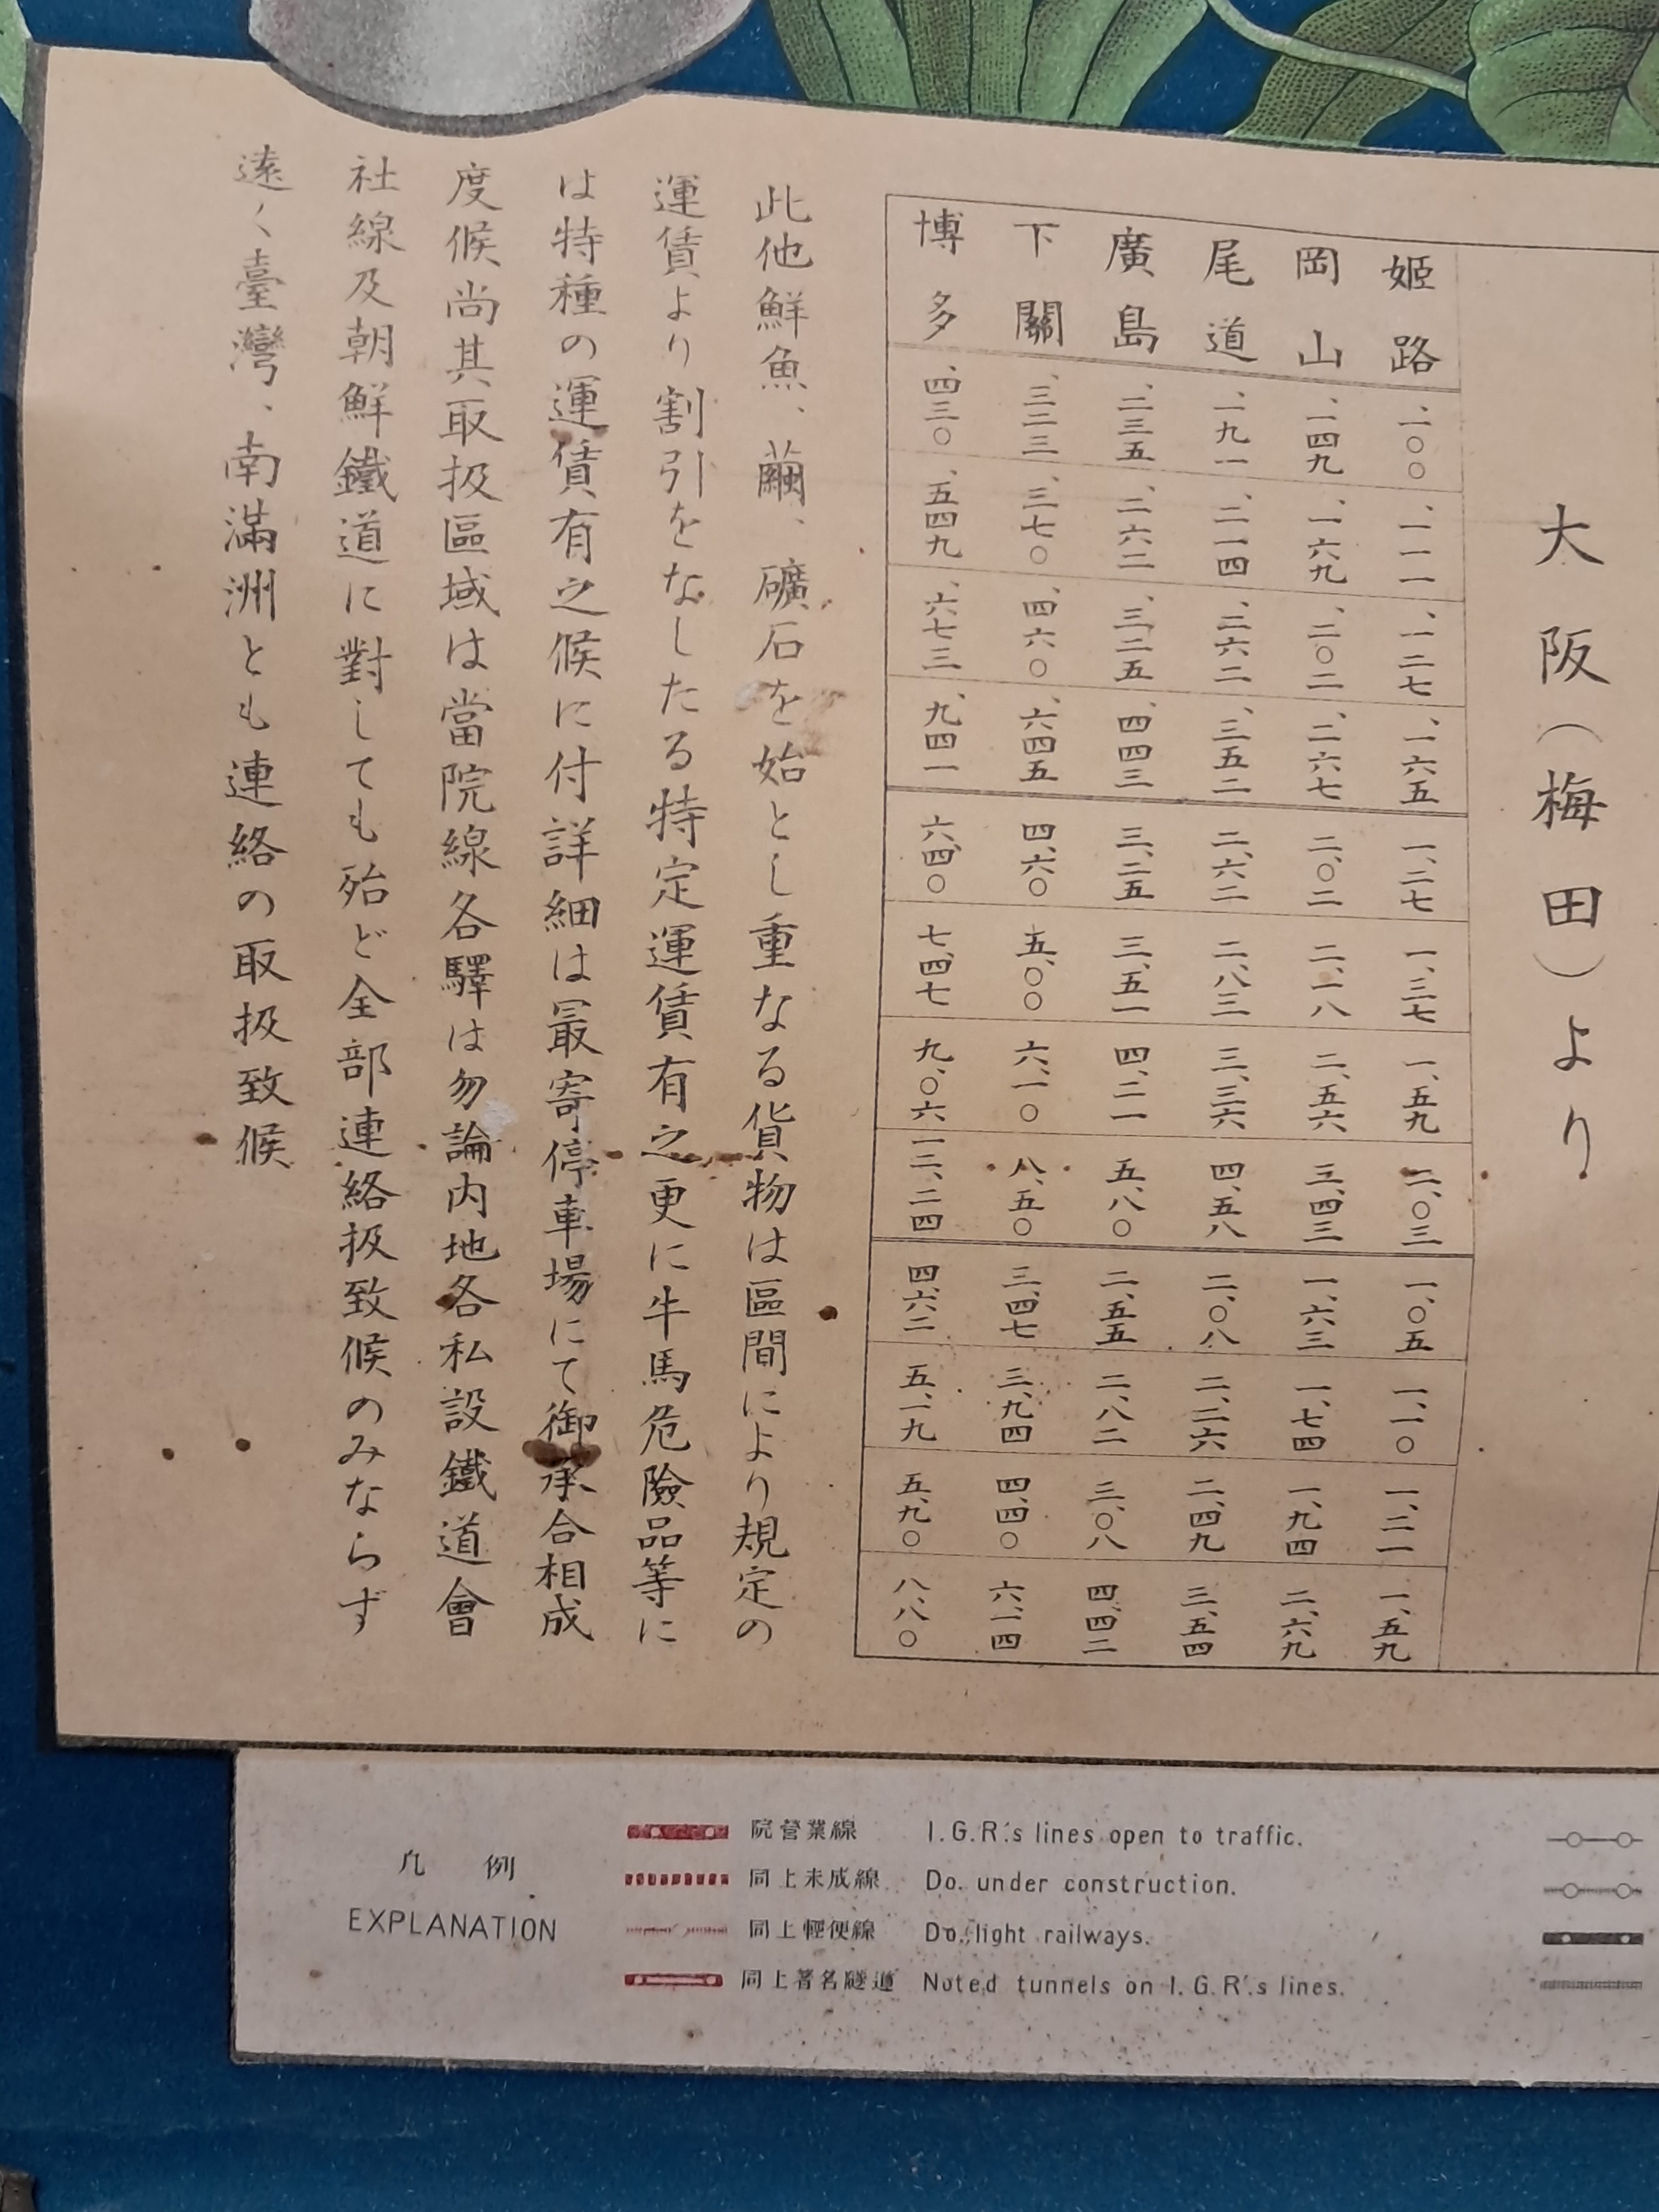 大阪(梅田)より
姫路 、一〇〇 、一一一 、一二七 、一六五 一、二七 一、三七 一、五九 二、〇三 一、〇五 一、一〇 一、二一 一、五九
岡山 、一四九 、一六九 、二〇二 、二六七 二、〇二 二、一八 二、五六 三、四三 一、六三 一、七四 一、九四 二、六九
尾道 、一九一 、二一四 、二六二 、三五二 二、六二 二、八三 三、三六 四、五八 二、〇八 二、二六 二、四九 三、五四
廣島 、二三五 、二六二 、三二五 、四四三 三、二五 三、五一 四、二一 五、八〇 二、五五 二、八二 三、〇八 四、四二
下關 、三二三 、三七〇 、四六〇 、六四五 四、六〇 五、〇〇 六、一〇 八、五〇 三、四七 三、九四 四、四〇 六、一四
博多 、四三〇 、五四九 、六七三 、九四一 六、四〇 七、四七 九、〇六 一三、二四 四、六二 五、一九 五、九〇 八、八〇
此他鮮魚、繭、礦石を始とし重なる貨物は區間により規定の
運賃より割引をなしたる特定運賃有之更に牛馬危險品等に
は特種の運賃有之候に付詳細は最寄停車場にて御承合相成
度候尚其取扱區域は當院線各驛は勿論内地各私設鐵道會
社線及朝鮮鐵道に對しても殆ど全部連絡扱致候のみならず
遠く臺灣、南滿洲とも連絡の取扱致候
凡例
EXPLANATION
院營業線 I.G.R.'s lines open to traffic.
同上未成線 Do. under construction.
同上輕便線 Do. light railways.
同上著名隧道 Noted tunnels on I.G.R.'s lines.